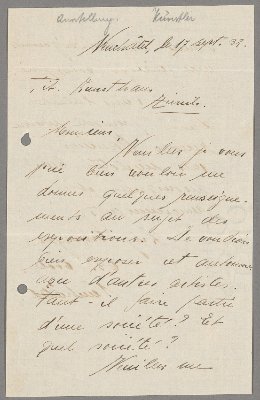 Ausstellung. Künstler
Neuchâtel, le 17 sept. 33.
Tit. Kunsthaus
Zürich.
Monsieur,
Veuillez je vous
prie bien vouloir me
donner quelques renseigne-
ments au sujet des
expositions. Je voudrais
bien exposer cet automne
avec d'autres artistes.
Faut-il faire partie
d'une société? Et
quel société?
Veuillez me